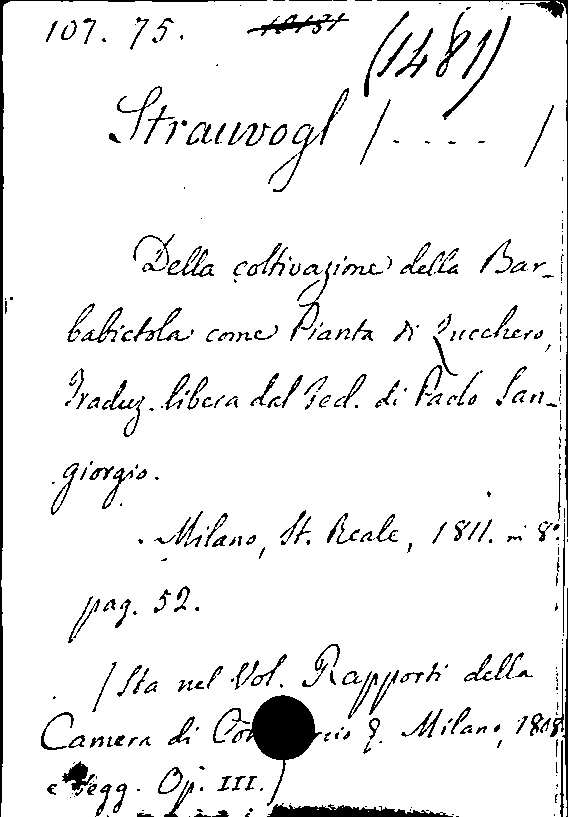 107. 75. (1481)
Strauvogl / . . . . /
Della coltivazione della Bar-
babietola come Pianta di Zucchero,
Traduz. libera dal Ted. di Paolo San-
giorgio.
Milano, St. Reale, 1811. in 8°.
pag. 52.
/ Sta nel Vol. Rapporti della
Camera di Milano, 1808
e segg. Op. III. )